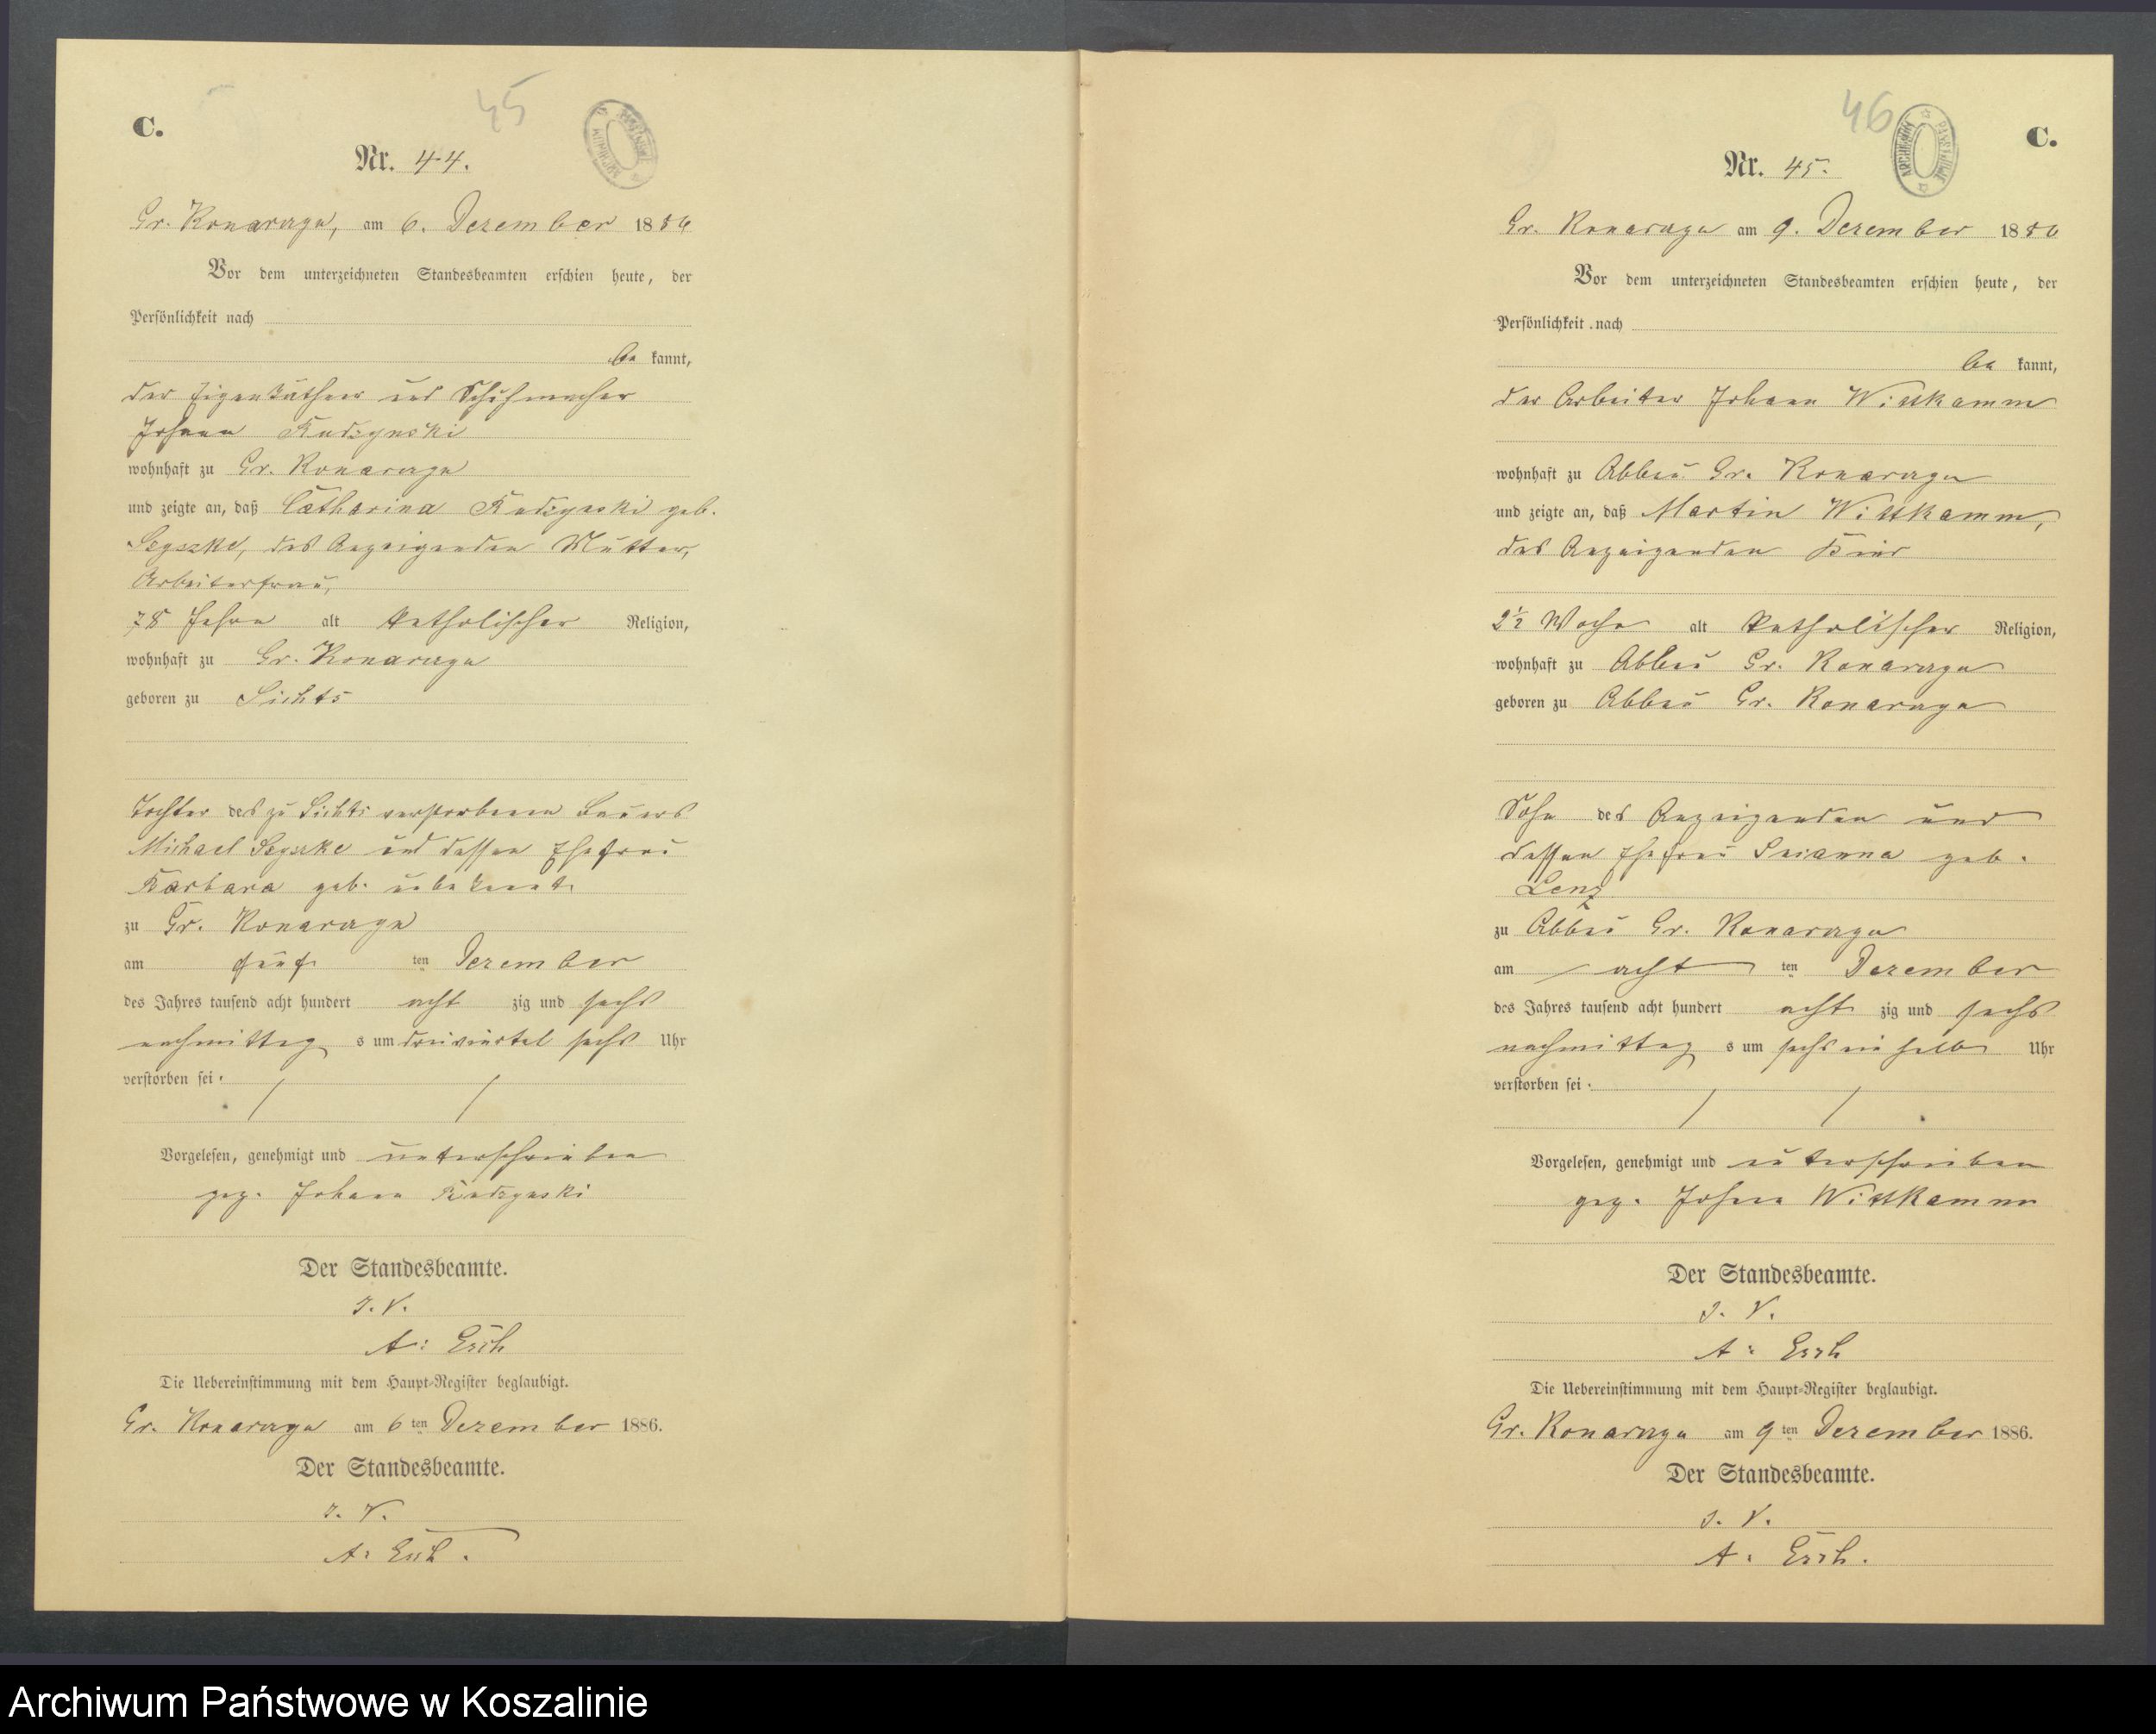 C.
45
Nr. 44.
Gr. Konarczyn, am 6. Dezember 1886
Vor dem unterzeichneten Standesbeamten erschien heute, der
Persönlichkeit nach
be kannt,
der Eigenkäthner und Schuhmacher
Johann
wohnhaft zu Gr. Konarczyn
und zeigte an, daß Catharina geb.
des Anzeigenden Mutter,
Arbeiterfrau,
78 Jahre alt katholischer Religion,
wohnhaft zu Gr. Konarczyn
geboren zu Lichts
Tochter des zu verstorbenen Bauers
Michael und dessen Ehefrau
Barbara geb. unbekannt.
zu Gr. Konarczyn
am fünf ten Dezember
des Jahres tausend acht hundert acht zig und sechs
nachmittag s um dreiviertel sechs Uhr
verstorben sei.
Vorgelesen, genehmigt und unterschrieben
gez. Johann
Der Standesbeamte.
I. V.
A. Esch
Die Uebereinstimmung mit dem Haupt-Register beglaubigt.
Gr. Konarczyn am 6 ten Dezember 1886.
Der Standesbeamte.
I. V.
A. Esch.
46
C.
Nr. 45.
Gr. Konarczyn am 9. Dezember 1886
Vor dem unterzeichneten Standesbeamten erschien heute, der
Persönlichkeit nach
be kannt,
der Arbeiter Johann Wittkamm
wohnhaft zu Abbau Gr. Konarczyn
und zeigte an, daß Martin Wittkamm,
des Anzeigenden Kind
2½ Woche alt katholischer Religion,
wohnhaft zu Abbau Gr. Konarczyn
geboren zu Abbau Gr. Konarczyn
Sohn des Anzeigenden und
dessen Ehefrau geb.
Lenz
zu Abbau Gr. Konarczyn
am acht ten Dezember
des Jahres tausend acht hundert acht zig und sechs
nachmittag s um sechs ein halb Uhr
verstorben sei.
Vorgelesen, genehmigt und unterschrieben
gez. Johann Wittkamm
Der Standesbeamte.
I. V.
A. Esch
Die Uebereinstimmung mit dem Haupt-Register beglaubigt.
Gr. Konarczyn am 9 ten Dezember 1886.
Der Standesbeamte.
I. V.
A. Esch.
Archiwum Państwowe w Koszalinie